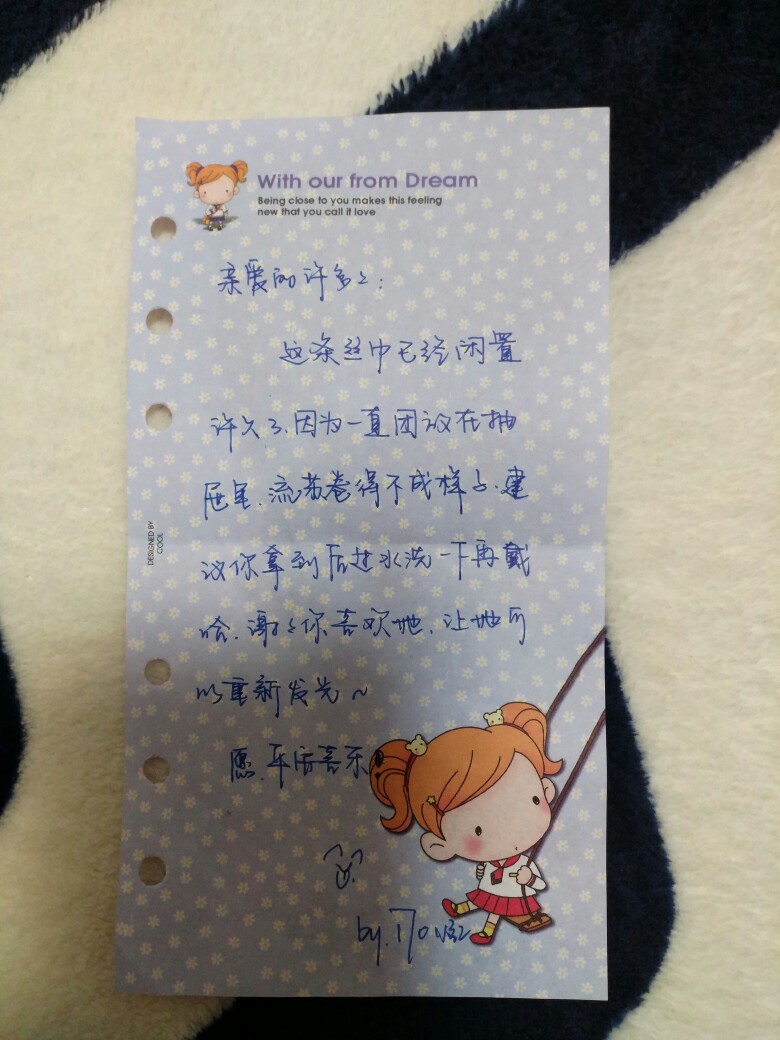 With our from Dream
Being close to you makes this feeling
new that you call it love
亲爱的许多多:
这条丝巾已经闲置
许久了、因为一直团放在抽
屉里、流苏卷得不成样子、建
议你拿到后过水洗一下再戴
哈、谢谢你喜欢她、让她可
以重新发光~
愿、平安喜乐
by.
DESIGNED BY
COOL